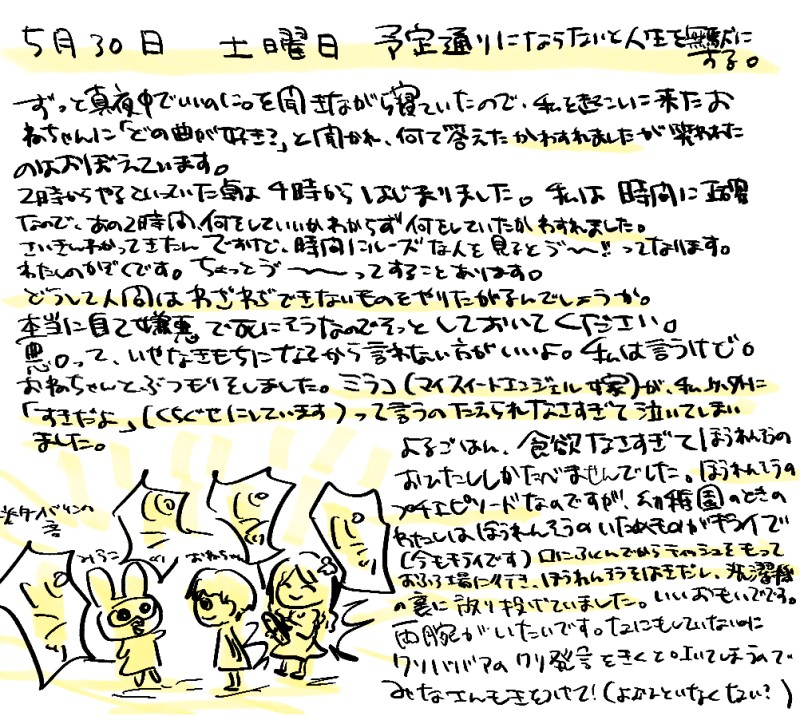 5月30日 土曜日 予定通りにならないと人生を無駄に
する。
ずっと真夜中でいいのに。を聞きながら寝ていたので、私を起こしに来たお
ねちゃんに「どの曲が好き?」と聞かれ、何て答えたかわすれましたが笑われた
のはおぼえています。
2時からやるといっていた
は4時からはじまりました。私は時間に
なので、あの2時間、何をしていいかわからず何をしていたかわすれました。
さいきんわかってきたんですけど、時間にルーズな人を見るとゔ〜〜!!ってなります。
わたしのかぞくです。ちょっとゔ〜〜ってすることあります。
どうして人間はわざわざできないものをやりたがるんでしょうか。
本当に自己嫌悪で死にそうなのでそっとしておいてください。
悪口って、いやなきもちになるから言わない方がいいよ。私は言うけど。
おねちゃんとぶつもりをしました。ミラコ(マイスイートエンジェル嫁)が、私以外に
「すきだよ」(くちぐせにしています)って言うのたえられなさすぎて泣いてしまい
ました。
よるごはん、食欲なさすぎてほうれんそうの
おひたししかたべませんでした。ほうれんそうの
プチエピソードなのですが、幼稚園のときの
わたしはほうれんそうのいためものがキライで
(今もキライです)口にふくんでからティッシュをもって
おふろ場に行き、ほうれんそうをはきだし、洗濯機
の裏に放り投げていました。いいおもいでです。
両腕がいたいです。なにもしていないのに
クソババアのクソ発言をきくと吐いてしまうので
みなさんもきをつけて!(よかろといなくない?)
の音
みらこ
おねちゃん